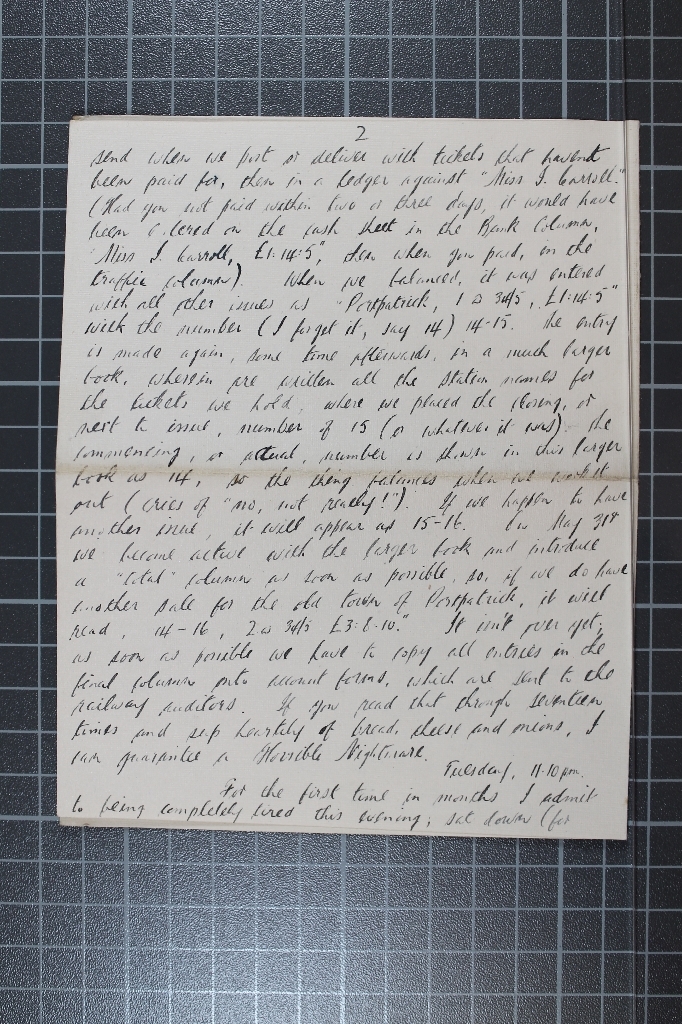 2
send when we post or deliver with tickets that haven't
been paid for, then in a ledger against "Miss J. Carroll."
(Had you not paid within two or three days, it would have
been entered on the cash sheet in the Bank Column,
"Miss J. Carroll, £1:14:5", then when you paid, in the
traffic column). When we balanced, it was entered
with all other issues as "Portpatrick, 1 @ 34/5, £1:14:5"
with the number (I forget it, say 14) 14-15. The entry
is made again, some time afterwards, in a much larger
book, wherein are written all the station names for
the tickets we hold, where we placed the closing, or
next to issue, number of 15 (or whatever it was). The
commencing, or actual, number is shown in this larger
book as 14, so the thing balances when we work it
out (cries of "no, not really!"). If we happen to have
another issue, it will appear as 15-16. On May 31st
we become active with the larger book and introduce
a "total" column as soon as possible, so, if we do have
another sale for the old town of Portpatrick, it will
read, "14-16, 2 @ 34/5 £3:8:10." It isn't over yet;
as soon as possible we have to copy all entries in the
final column onto account forms, which are sent to the
railway auditors. If you read that through seventeen
times and sup heartily of bread, cheese and onions, I
can guarantee a Horrible Nightmare.
Tuesday, 11.10 pm.
For the first time in months I admit
to being completely tired this evening; sat down (for